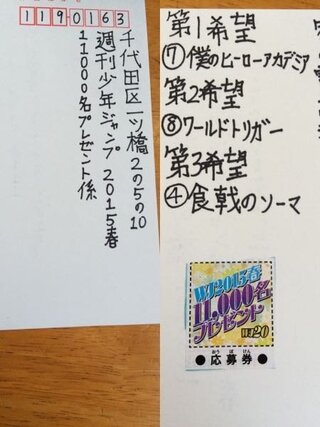 1190163
千代田区一ツ橋2の5の10
週刊少年ジャンプ2015春
11000名プレゼント係
第1希望
⑦僕のヒーローアカデミア
第2希望
⑧ワールドトリガー
第3希望
④食戟のソーマ
WJ2015春
11,000名
プレゼント
WJ20
●応募券●
おうぼけん